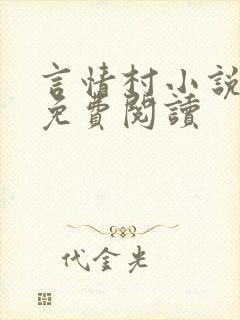 言情村小說
免費閱讀
代金光